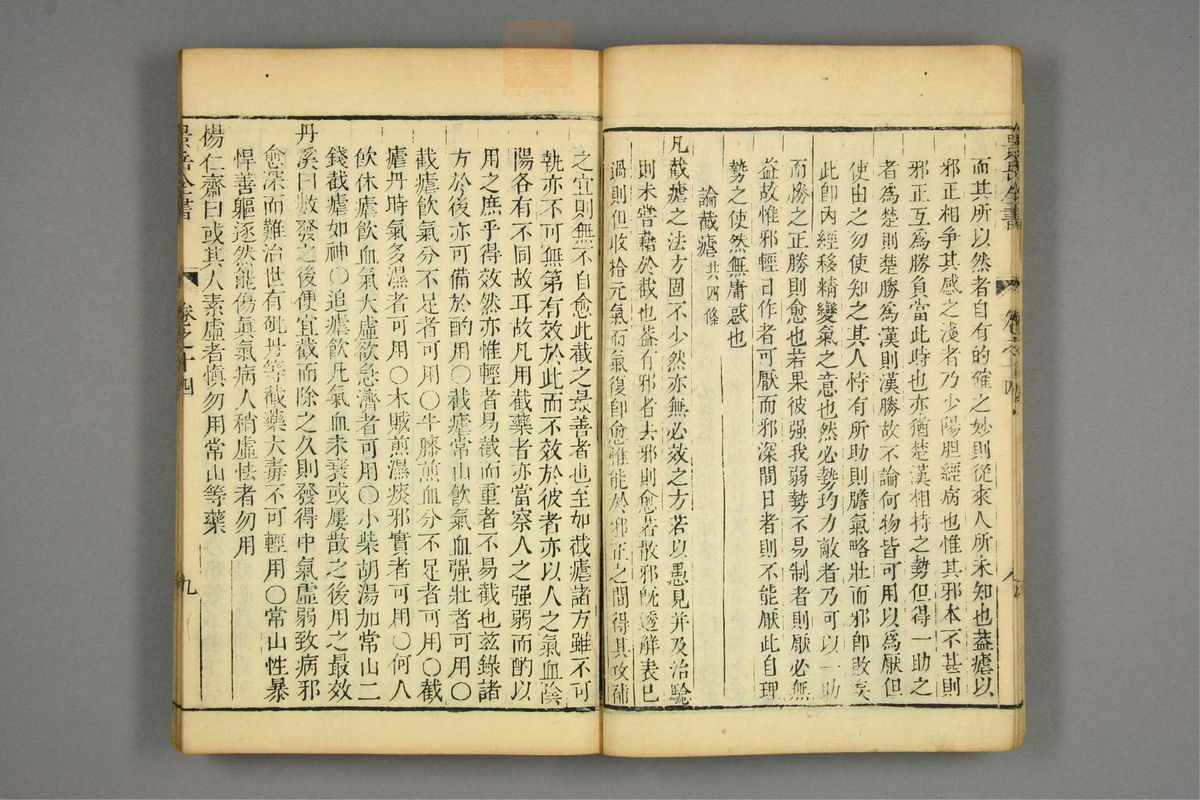 而其所以然者自有的確之妙則從來人所未知也蓋瘧以
邪正相爭其感之淺者乃少陽膽經病也惟其邪本不甚則
邪正互爲勝負當此時也亦猶楚漢相持之勢但得一助之
者爲楚則楚勝爲漢則漢勝故不論何物皆可用以爲厭但
使由之勿使知之其人恃有所助則膽氣略壯而邪卽敗矣
此卽內經移精變氣之意也然必勢均力敵者乃可以一助
而勝之正勝則愈也若果彼强我弱勢不易制者則厭必無
益故惟邪輕日作者可厭而邪深間日者則不能厭此自理
勢之使然無庸惑也
論截瘧共四條
凡截瘧之法方固不少然亦無必效之方若以愚見并及治驗
則未嘗藉於截也蓋有邪者去邪則愈若散邪旣透解表已
過則但收拾元氣而氣復卽愈惟能於邪正之間得其攻補
之宜則無不自愈此截之最善者也至如截瘧諸方雖不可
執亦不可無第有效於此而不效於彼者亦以人之氣血陰
陽各有不同故耳故凡用截藥者亦當察人之强弱而酌以
用之庶乎得效然亦惟輕者易截而重者不易截也茲錄諸
方於後亦可備於酌用○截瘧常山飮氣血强壯者可用○
截瘧飮氣分不足者可用○牛膝煎血分不足者可用○截
瘧丹時氣多濕者可用○木賊煎濕痰邪實者可用○何人
飮休瘧飮血氣大虛欲急濟者可用○小柴胡湯加常山二
錢截瘧如神○追瘧飮凡氣血未衰或屢散之後用之最效
丹溪曰數發之後便宜截而除之久則發得中氣虛弱致病邪
愈深而難治世有砒丹等截藥大毒不可輕用○常山性暴
悍善驅逐然能傷眞氣病人稍虛怯者勿用
楊仁齋曰或其人素虛者愼勿用常山等藥
景岳全書
卷之十四
九